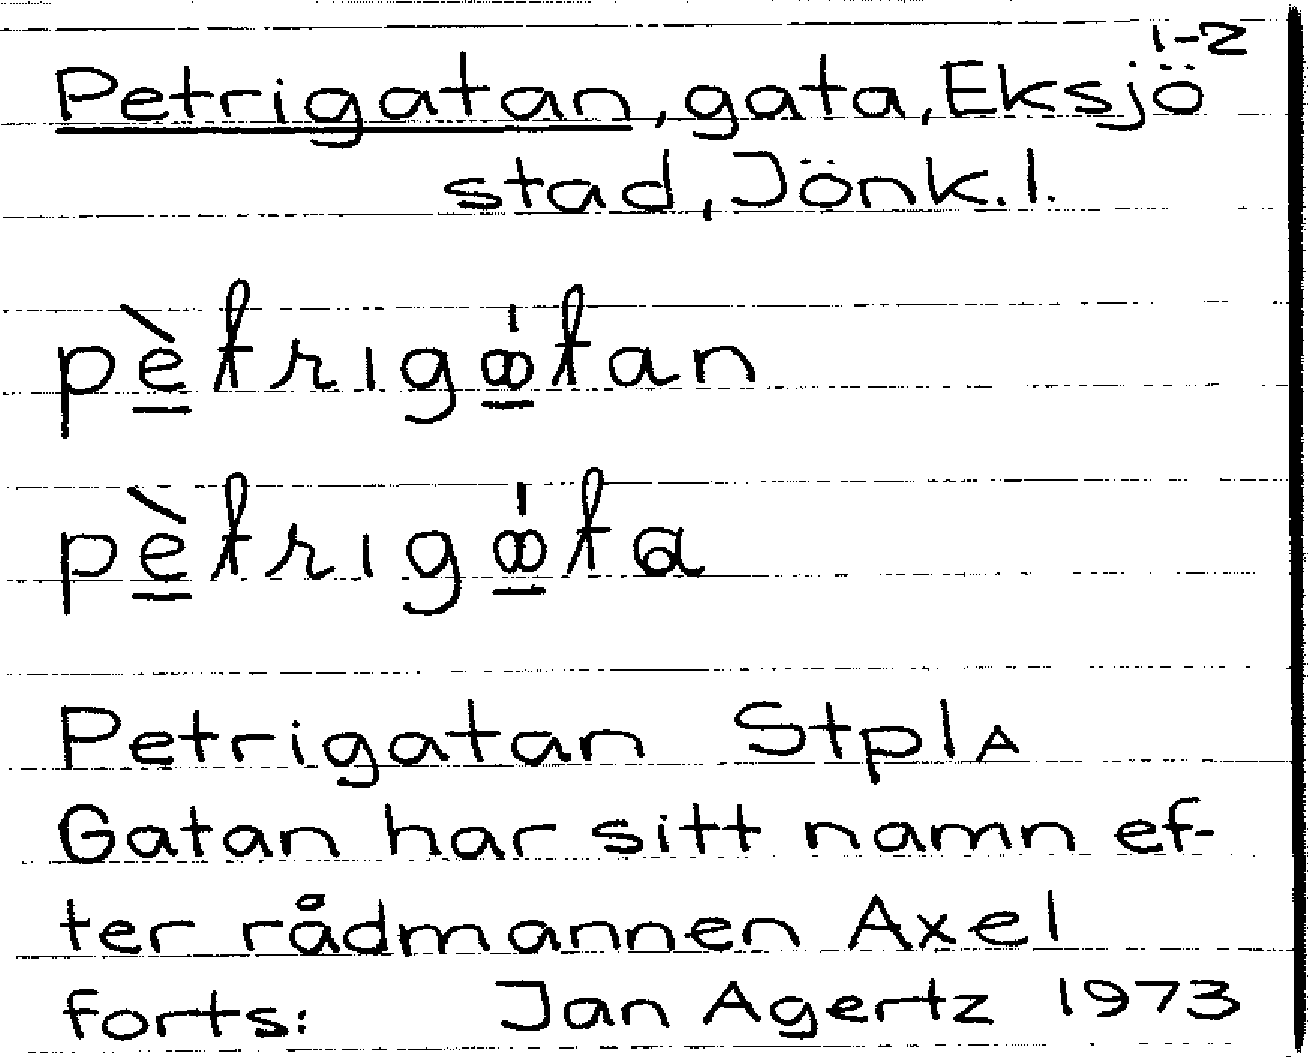 1-2
Petrigatan, gata, Eksjö
stad, Jönk. l.
pètrigꝏ́tan
pètrigꝏ́ta
Petrigatan StplA
Gatan har sitt namn ef-
ter rådmannen Axel
forts: Jan Agertz 1973